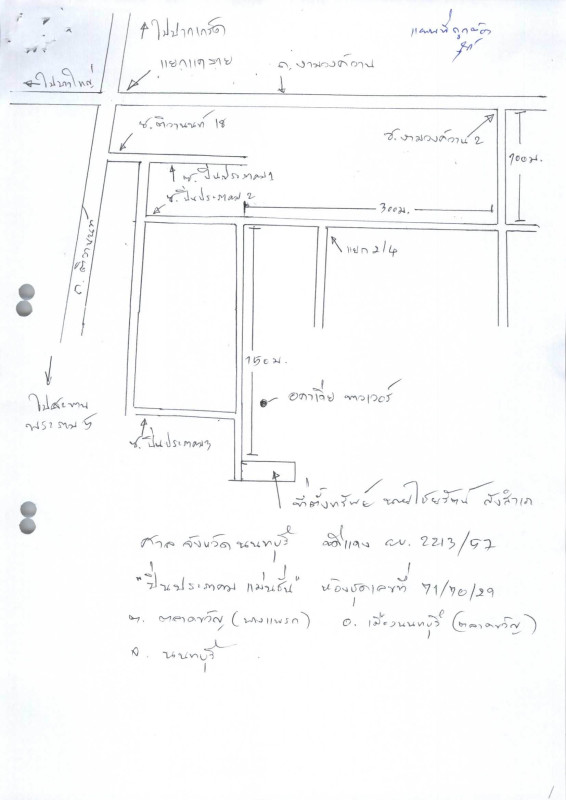 ไปปากเกร็ด
แผนที่ถูกต้อง
แยกแคราย
ถ. งามวงศ์วาน
ซ. ติวานนท์ 18
ซ. งามวงศ์วาน 2
ซ. ปิ่นประภาคม 1
ซ. ปิ่นประภาคม 2
300 ม.
แยก 2/4
ถ. ติวานนท์
150 ม.
ไปสะพาน
พระราม 5
ซ. ปิ่นประภาคม 3
ที่ตั้งทรัพย์ นายไชยรัตน์
ศาลจังหวัดนนทบุรี คดีแดง ผบ. 2213/57
"ปิ่นประภาคม แมนชั่น" ห้องชุดเลขที่ 71/70/29
ต. ตลาดขวัญ (บางแพรก) อ. เมืองนนทบุรี (ตลาดขวัญ)
จ. นนทบุรี